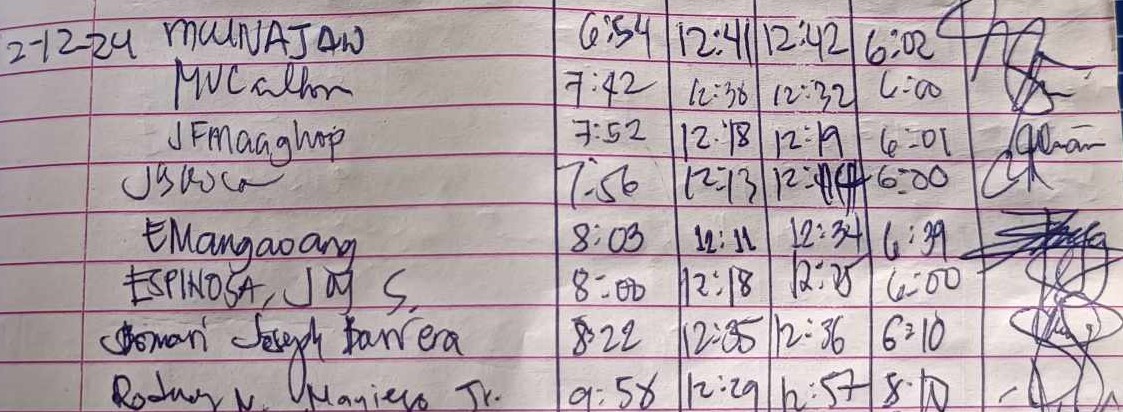 2-12-24 6:54 12:41 12:42 6:02
7:42 12:38 12:32 6:00
JFMaaghop 7:52 12:18 12:19 6:01
7:56 12:13 6:00
EMangaoang 8:03 12:11 12:34 6:39
ESPINOSA, J M S. 8:00 12:18 12:25 6:00
Jomari Joseph Barrera 8:22 12:35 12:36 6:10
Rodney N. Jr. 9:58 12:29 12:57 8:10